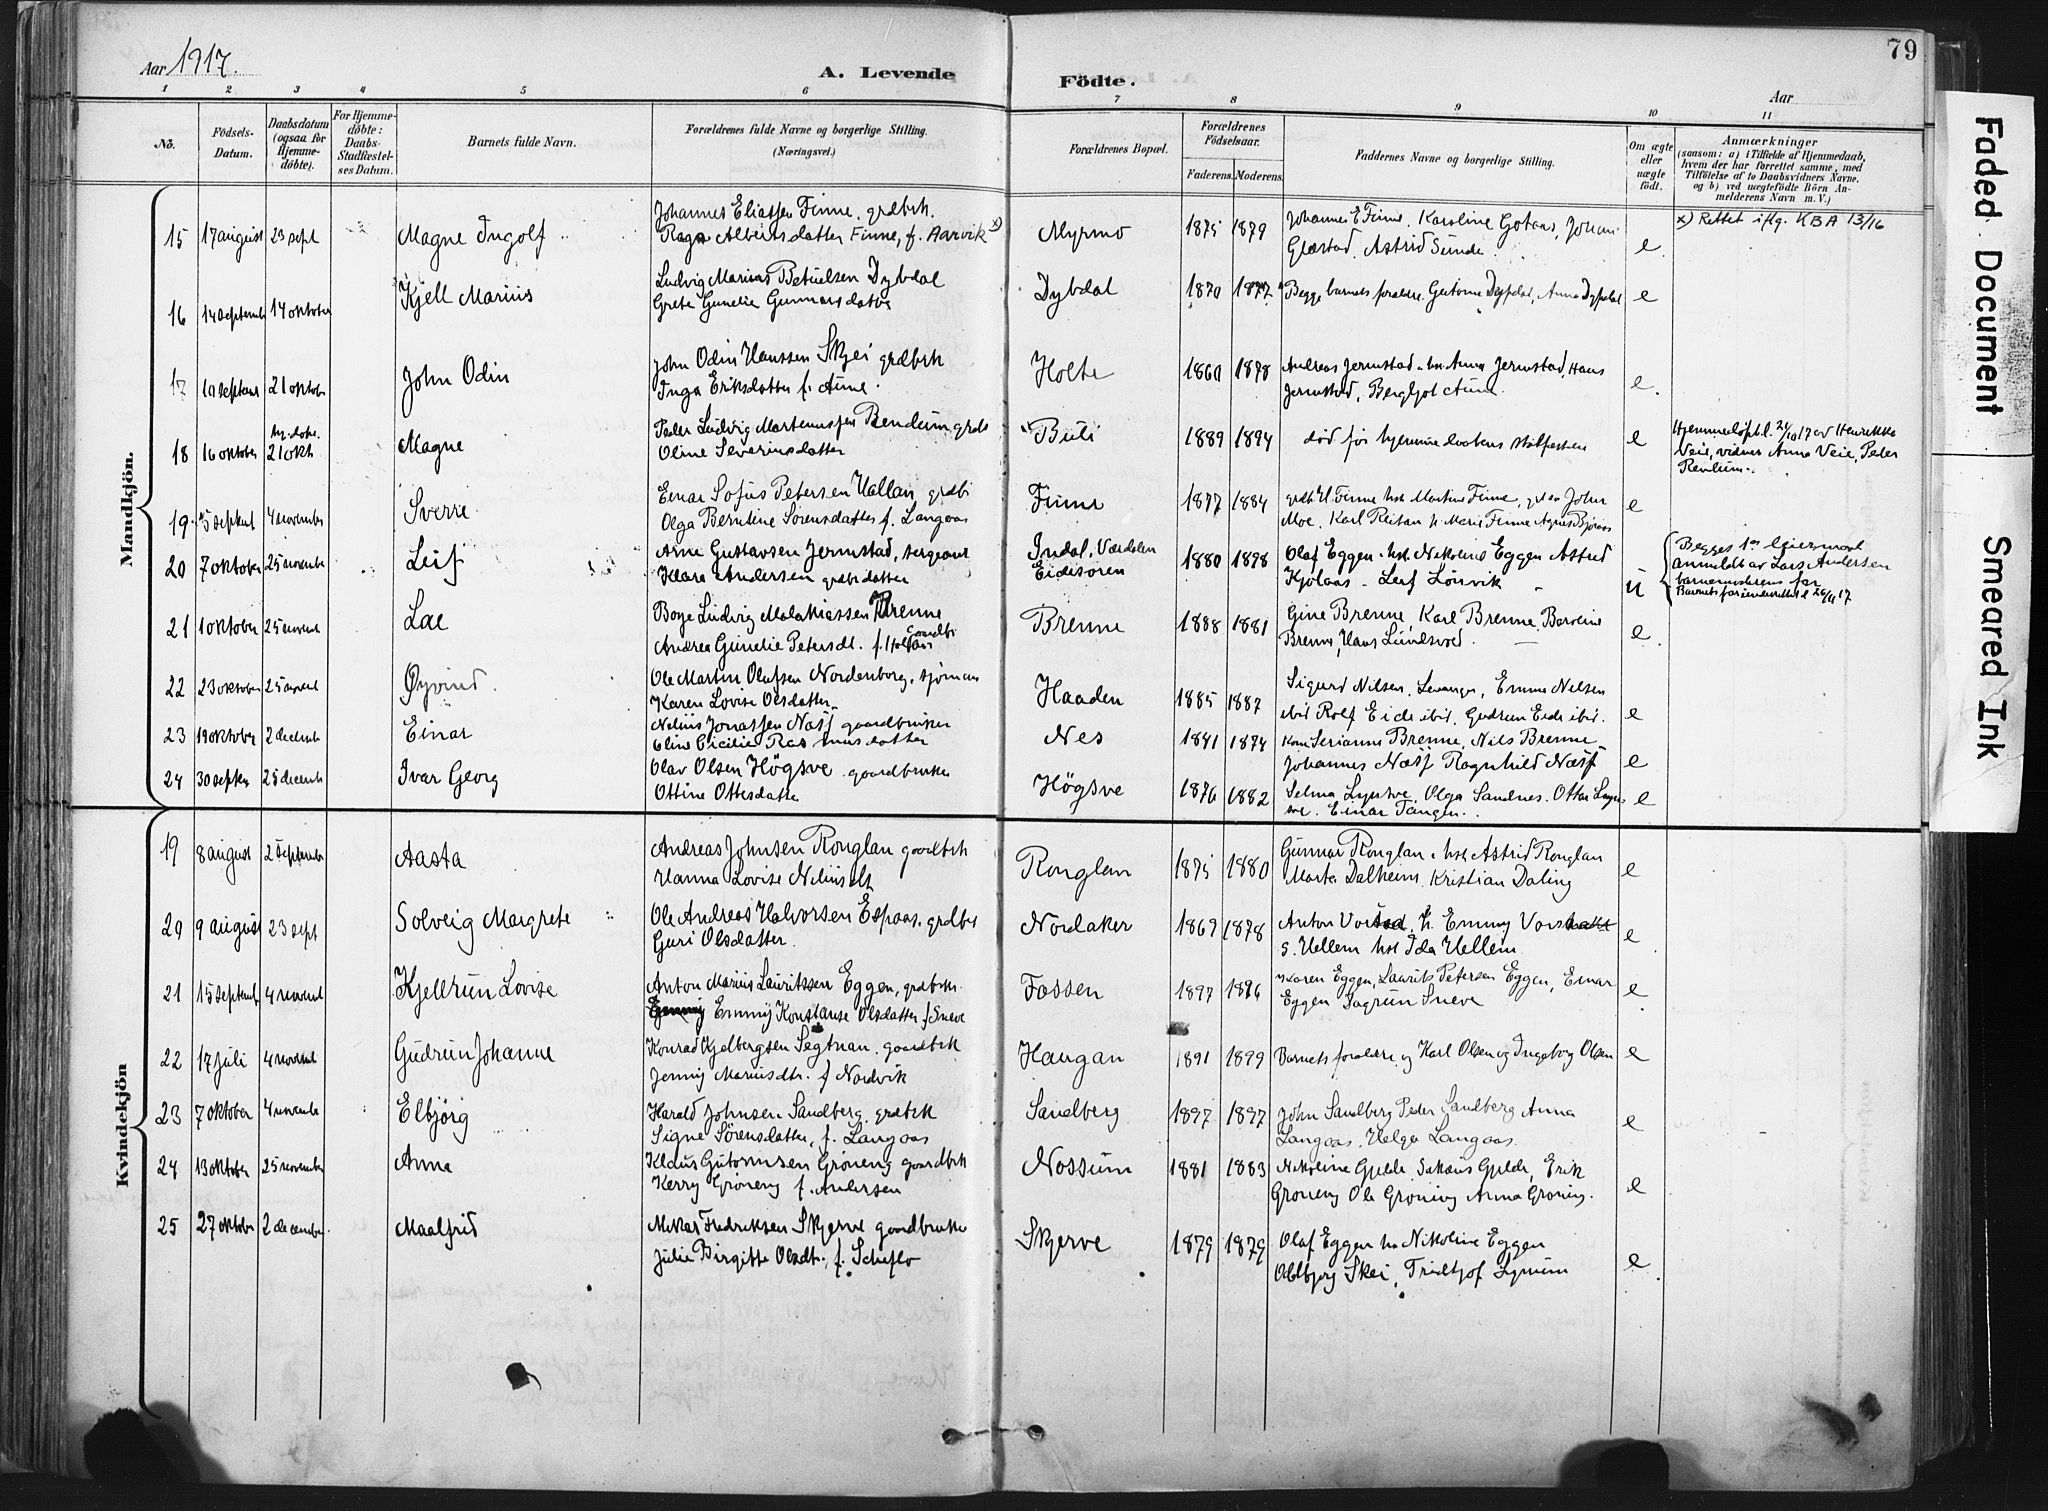 Aar 1917.
A. Levende
Födte.
Aar
79
1 2 3 4 5 6 7 8 9 10 11
No.
Födsels-
Datum.
Daabsdatum
(ogsaa for
Hjemme-
döbte).
For Hjemme-
döbte:
Daabs-
Stadfæstel-
ses Datum.
Barnets fulde Navn.
Forældrenes fulde Navne og borgerlige Stilling.
(Næringsvei.)
Forældrenes Bopæl.
Forældrenes
Födselsaar.
Faderens. Moderens.
Faddernes Navne og borgerlige Stilling.
Om ægte
eller
uægte
födt.
Anmærkninger
(saasom: a) i Tilfælde af Hjemmedaab,
hvem der har forrettet samme, med
Tilföielse af to Daabsvidners Navne.
og b) ved uægtefödte Börn An-
melderens Navn m. V.)
Mandkjön.
15 17 august 23 sept Magne Ingolf
Johannes Eliassen Finne. grdbrk.
Albertsdatter Finne, f. Aarvik x)
Myrmo 1875 1879
Johannes E Finne. Karoline Gotaas, Johan
Glæstad. Astrid Sunde. e.
x) Rettet iflg. KBA 13/16
16 14 september 14 oktober Kjell Marius
Ludvig Marius Betuelsen Dybdal
Grete Gunelie Gunnarsdatter
Dybdal 1870 1877
Begge barnets forældre. Dypdal, Anna Dypdal e
17 10 septemb 21 oktober John Odin
John Odin Hanssen Skjei grdbrk
Inga Eriksdatter f. Aune.
Holte 1860 1878
Andreas Jermstad. hst. Anna Jermstad, Hans
Jermstad, Bergljot Aune. e.
18 16 oktober 21 okt. Magne
Peder Ludvig Martinussen
Oline Severinsdatter
1889 1894
død før hjemmedaabens stadfæsten e
Veie, vidner Anna Veie, Peder
19 15 septemb 4 november Sverre
Einar Sofus Petersen Hallan, grdbr
Olga Berntine Sørensdatter f. Langaas
Finne 1877 1884
Finne hst Martine Finne, John
Moe, Karl Reitan Marie Finne Agnes e
20 7 oktober 25 november Leif
Arne Gustavsen Jermstad, sergeant
Klara Andersen grdbr datter
Indal, Værdalen
Eidesøren 1880 1898
Olaf Eggen. hst. Nikoline Eggen Astrid
Kjølaas - Leif Lønvik u
Begges 1ste leiermaal
anmeldt av Lars Andersen
barnemoderens far
21 1 oktober 25 novemb
Borge Ludvig Malakiassen Brenne
Andrea Gunelie Petersdt. f. Holsaas Gaardbr
Brenne 1888 1881
Gine Brenne, Karl Brenne,
Brenne, Hans Lundsvoed. e.
22 23 oktober 25 novemb Øyvind.
Ole Martin Olafsen Nordenborg, sjøman
Karen Lovise Olsdatter
Haaden 1885 1887
Sigurd Nilsen, Levanger, Emma Nilsen
ibid Rolf Eide ibid. Gudrun Eide ibid. e
23 19 oktober 2 decemb Einar
Nelius Jonassen Næss gaardbruker
Eline Cicilie Rasmusdatter
Nes 1874
Serianna Brenne, Nils Brenne
Johannes Næss Ragnhild Næss e
24 30 septbr 25 decemb Ivar Georg
Olav Olsen Högsve gaardbruker
Ottine Ottesdatter
Högsve 1876 1882
Selma Lyngsve. Olga Sandnes. Ottar Lyng
sve. Einar Tangen. e
Kvindekjön
19 8 august 2 september Aasta
Andreas Johnsen Ronglan gaardbrk
Hanna Lovise Neliusdt
Ronglan 1875 1880
Gunnar Ronglan hst Astrid Ronglan
Marta Dalheim. Kristian Daling e
20 9 august 23 sept Solveig Margrete
Ole Andreas Halvorsen Espaas, grdbr
Guri Olsdatter.
Nordaker 1869 1878
Anton h. Emmy
s. Hellem hst Ida Hellem e
21 15 septemb 4 novemb Kjellrun Lovise
Anton Marius Lauritssen Eggen, grdbrk.
Emmy Konstanse Olsdatter f Sneve
Fossen 1897 1896
Karen Eggen, Laurits Petersen Eggen, Einar
Eggen Dagrun Sneve e
22 17 juli 4 novemb Gudrun Johanne
Konrad Kjelbergsen Segtnan. gaardbrk
Jenny Mariusdtr. f Nordvik
Haugan 1891 1899
Barnets forældre og Karl Olsen og Ingeborg Olsen e
23 7 oktober 4 novembe Elbjörg
Harald Johnsen Sandberg. grdbrk
Signe Sörensdatter, f. Langaas
Sandberg 1897 1897
John Sandberg Peder Sandberg Anna
Langaas. Helga Langaas. e
24 13 oktober 25 november Anna
Klaus Gutormsen Gröneng gaardbrk
Kerry Gröneng f. Andersen
Nossum 1881 1883
Nikoline Gjelde Gjelde, Erik
Gröneng Ole Gröning Anna Gröning. e
25 27 oktober 2 december Maalfrid
Fredriksen Skjerve gaardbruker
Julie Birgitte Olsdt., f. Scheflo
Skjerve 1879 1879
Olaf Eggen hst Nikoline Eggen
Oddbjorg Skei, Fridtjof Lynum e
Faded Document
Smeared Ink